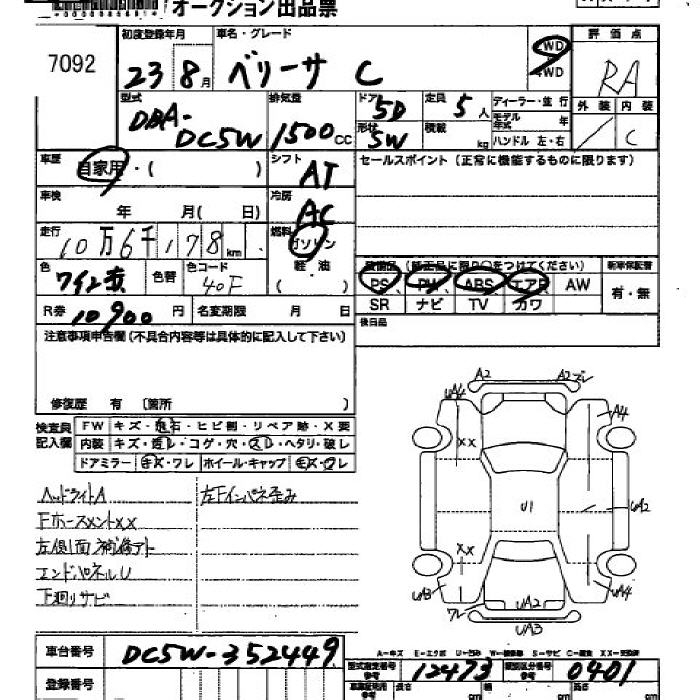 オークション出品票
7092
初度登録年月 車名・グレード 評価点
23 8月 ベリーサ C 2WD 4WD RA
型式 排気量 ドア 5D 定員 5人 ディーラー・並行 外装 内装
DBA-DC5W 1500cc 形状 5W 積載 kg モデル年式 年 ハンドル 左・右 / C
車歴 自家用・( ) シフト AT セールスポイント(正常に機能するものに限ります)
車検 年 月( 日) 冷房 AC
走行 10万6千178km 燃料 ガソリン 軽油 ( )
色 ワイン 色替 色コード 40F
装備品(純正品に限り○をつけてください) 新車保証書
PS、PW、ABS、エアB、AW 有・無
SR ナビ TV カワ
R券 10900円 名変期限 月 日 後日品
注意事項申告欄(不具合内容等は具体的に記入して下さい)
修復歴 有 〔箇所 〕
検査員記入欄 FW キズ・飛石・ヒビ割・リペア跡・X要
内装 キズ・汚レ・コゲ・穴・スレ・ヘタリ・破レ
ドアミラー キズ・ワレ ホイール・キャップ キズ・ワレ
ヘッドライトA 左Fインパネ歪み
FホースメントXX
左側面補修アト
エンドパネルU
下廻りサビ
A2 A2ズレ
UA4 A4
XX
U1 UA2
XX
UA3 UA2 UA4
ワレ UA3
A-キズ E-エクボ U-凹み W-補修跡 S-サビ C-腐食 XX-交換済
車台番号 DC5W-352449
型式指定番号 参考 12473 類別区分番号 参考 0401
登録番号 長さ cm 幅 cm 高さ cm